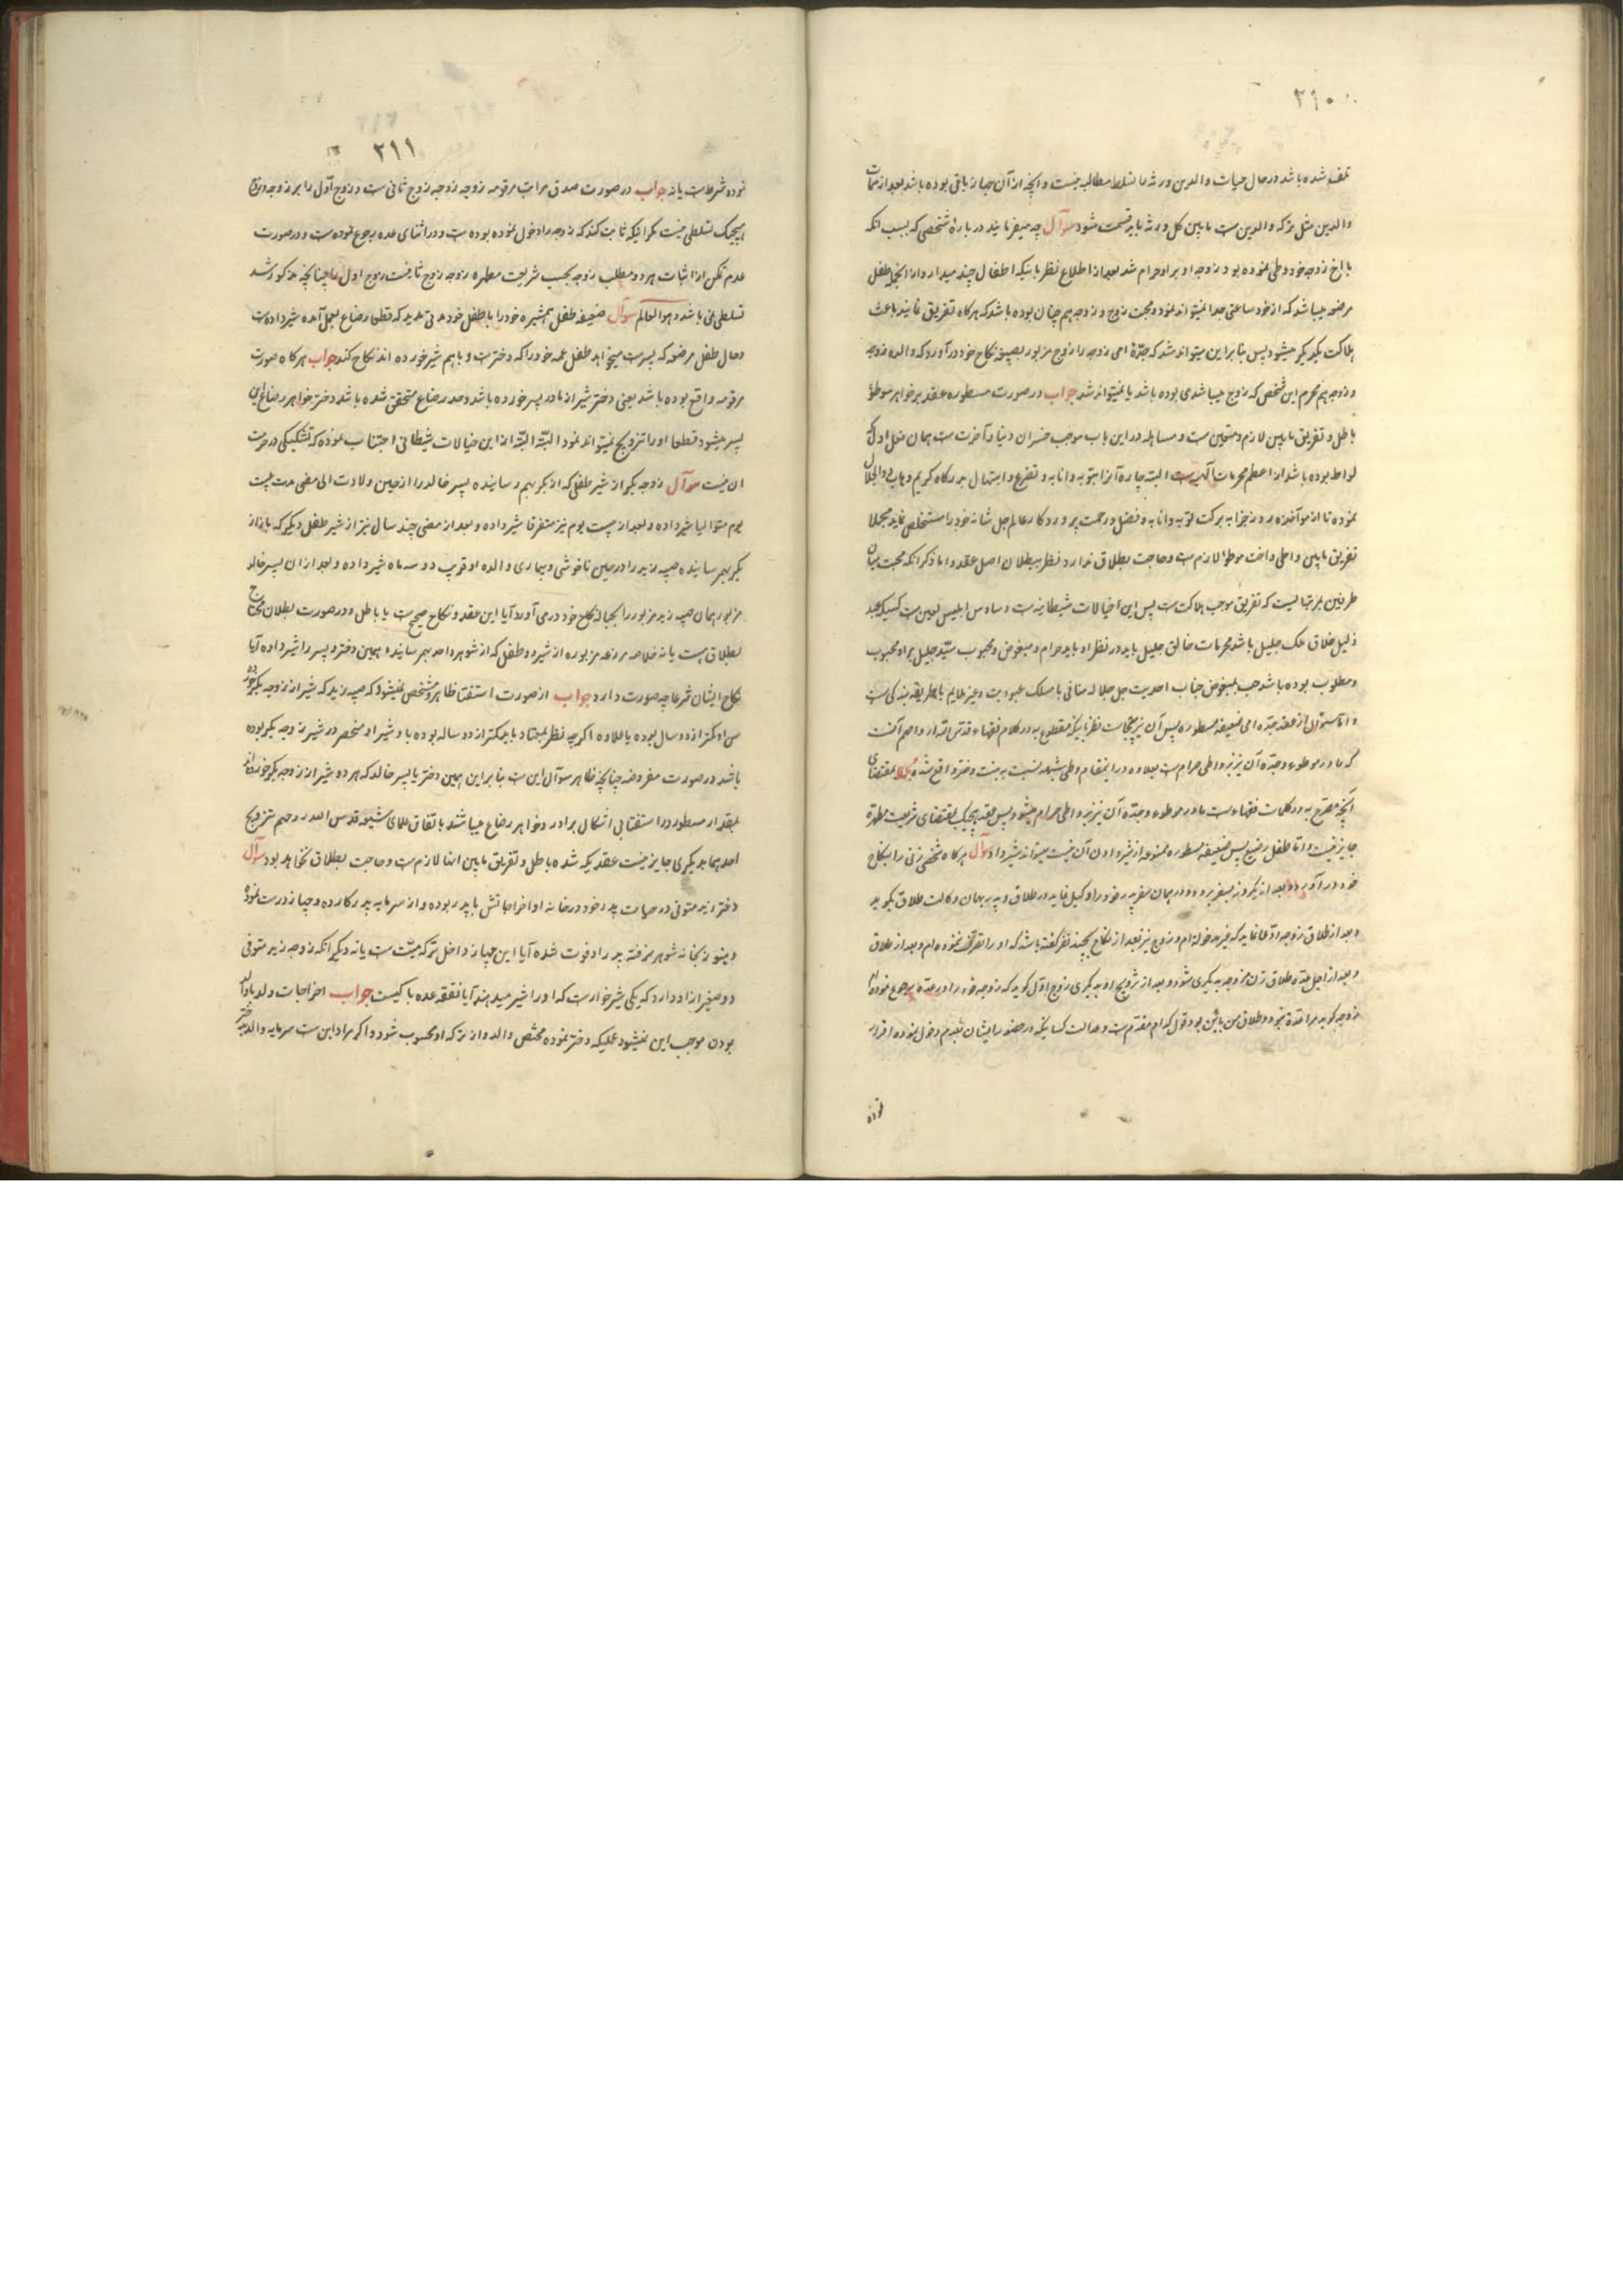 ۳۱۰
تلف شده باشد در حال حیات والدین ورثه را تسلط مطالبه نیست و آنچه از آن جهاز باقی بوده باشد بعد از ممات
والدین مثل ترکه والدین ست مابین کل ورثه باید قسمت شود سوآل چه میفرمایند در باره شخصی که بسبب انکه
با اخ زوجه خود وطی نموده بود زوجه او بر او حرام شد بعد از اطلاع نظر باینکه اطفال چند میدارد از انجمله طفل
مرضعه میباشد که از خود ساعتی جدا نمیتواند نمود و محبت زوج و زوجه هم چنان بوده باشد که هرکاه تفریق نمایند باعث
هلاکت یکدیکر میشود پس بنابراین میتواند شد که جدّهٔ امی زوجه را زوج مزبور بصیغهٔ نکاح خود در آورد که والده زوجه
و زوجه هم محرم این شخص که زوج میباشد بوده باشد یا نمیتواند شد جواب در صورت مسطوره عقد بر خواهر موطؤ
باطل و تفریق مابین لازم و متحتم ست و مساهله در این باب موجب خسران دنیا و آخرت ست همان فعل اول که
لواط بوده باشد از اعظم محرمات آلهیه ست البته چاره آنرا بتوبه و انابه و تضرع و ابتهال بدرکاه کریم وهاب ذوالجلال
نموده تا از مواخذه روز جزا به برکت توبه و انابه و فضل و رحمت پروردکار عالم جل شانه خود را مستخلص نماید مجملا
تفریق مابین واطی و اخت موطؤ لازم ست و حاجت بطلاق ندارد نظر ببطلان اصل عقد و اما ذکر انکه محبت میان
طرفین بمرتبه ایست که تفریق موجب هلاکت ست پس این خیالات شیطانیه ست و وساوس ابلیس لعین ست کسیکه عبد
ذلیل خلاق ملک جلیل باشد محرمات خالق جلیل باید در نظر او باید حرام و مبغوض و محبوب سیّد جلیل بر او محبوب
و مطلوب بوده باشد حب بمبغوض جناب احدیت جل جلاله منافی با مسلک عبودیت و غیر ملایم با طریقه بندکی ست
و اما سئوال از عقد جدّه امی ضعیفه مسطوره پس آن نیز نظر باینکه مقطوع به در کلام فقهاء قدس الله ارواحهم آنست
که مادر موطوءه و جدّه آن نیز بر واطی حرام ست بعلاوه در اینمقام وطی بشبهه نسبت به بنت دختر واقع شده مجملا بمقتضای
آنچه مصرّح به در کلمات فقهاء ست مادر موطوءه و جدّه آن نیز بر واطی حرام میشود پس عقد هیچیک بمقتضای شریعت مطهره
جایز نیست و اما طفل رضیع پس ضعیفه مسطوره ممنوعه از شیر دادن آن نیست میتواند شیر داد سوآل هرکاه شخصی زنی را بنکاح
خود در آورد و بعد از یکروز بسفر برود و در همان سفر پدر خود را وکیل نماید در طلاق و پدر بهمان وکالت طلاق بکوید
و بعد از طلاق زوجه ادّعا نماید که غیر مدخوله ام و زوج نیز بعد از نکاح بچند نفر کفته باشد که او را تصرف ننموده ام و بعد از طلاق
و بعد از اجل عدّه طلاق زن مزوجه بدیکری شود و بعد از تزویج او بدیکری زوج اوّل کوید که زوجه خود را در عدّه رجوع نموده ام
زوجه کوید مرا عدّه نبود و طلاق من بائن بود قول کدام مقدّم ست و عدالت کسانیکه در حضور ایشان بعدم دخول نموده اقرار
نموده
۳۱۱
نموده شرط ست یا نه جواب در صورت صدق مراتب مرقومه زوجه زوجه زوج ثانی ست و زوج اوّل را بر زوجه و زوج
هیچیک تسلطی نیست مکر اینکه ثابت کند که زوجه را دخول نموده بوده ست و در اثنای عده رجوع نموده ست و در صورت
عدم تمکن از اثبات هر دو مطلب زوجه بحسب شریعت مطهره زوجه زوج ثانیست زوج اول را چنانچه مذکور شد
تسلطی نمی باشد و هو العالم سوآل ضعیفه طفل همشیره خود را با طفل خود مدتی مدید که قطعا رضاع بعمل آمده شیر داده ست
و حال طفل مرضعه که پسر ست میخواهد طفل عمه خود را که دختر ست و با هم شیر خورده اند نکاح کند جواب هرکاه صورت
مرقومه واقع بوده باشد یعنی دختر شیر از مادر پسر خورده باشد و حد رضاع متحقق شده باشد دختر خواهر رضاعی این
پسر میشود قطعا او را تزویج نمیتواند نمود البتّه البتّه از این خیالات شیطانی اجتناب نموده که تشکیکی در حرمت
ان نیست سوآل زوجه بکر از شیر طفلی که از بکر بهم رسانیده پسر خالد را از حین ولادت الی مضی مدت بیست
یوم متوالیا شیر داده و بعد از بیست یوم نیز متفرقا شیر داده و بعد از مضی چند سال نیز از شیر طفل دیکر که باز از
بکر بهمرسانیده صبیه زید را در حین ناخوشی و بیماری والده او قریب دو سه ماه شیر داده و بعد از ان پسر خالد
مزبور همان صبیه زید مزبور را بحباله نکاح خود در می آورد آیا این عقد و نکاح صحیح ست یا باطل و در صورت بطلان محتاج
بطلاق ست یا نه خلاصه مرضعه مزبوره از شیر دو طفل که از شوهر واحد بهمرسانیده همین دختر و پسر را شیر داده آیا
نکاح ایشان شرعا چه صورت دارد جواب از صورت استفتا ظاهر و مشخص نمیشود که صبیه زید که شیر از زوجه بکر خورده
سن او کمتر از دو سال بوده یا علاوه اکرچه نظر بمعتاد باید کمتر از دو ساله بوده باشد و شیر او منحصر در شیر زوجه بکر بوده
باشد در صورت مفروضه چنانچه ظاهر سوآل این ست بنابراین همین دختر با پسر خالد که هر دو شیر از زوجه بکر خورده اند
بمقدار مسطور در استفتا بی اشکال برادر و خواهر رضاعی میباشند باتفاق علمای شیعه قدس الله روحهم تزویج
احدهما بدیکری جایز نیست عقدیکه شده باطل و تفریق مابین انها لازم ست و حاجت بطلاق نخواهد بود سوآل
دختر زید متوفی در حیات پدر خود در خانه او اخراجاتش با پدر بوده و از سرمایه پدر کار کرده و جهاز درست نموده
و هنوز بخانه شوهر نرفته پدر او فوت شده آیا این جهاز داخل ترکه میّت ست یا نه دیکر انکه زوجه زید متوفی
دو صغیر از او دارد که یکی شیرخوار ست که او را شیر میدهند آیا نفقه عده با کیست جواب اخراجات ولد با والد
بودن موجب این نمیشود عملیکه دختر نموده مختص والد و از ترکه او محسوب شود و اکر مراد این ست سرمایه والد بدختر